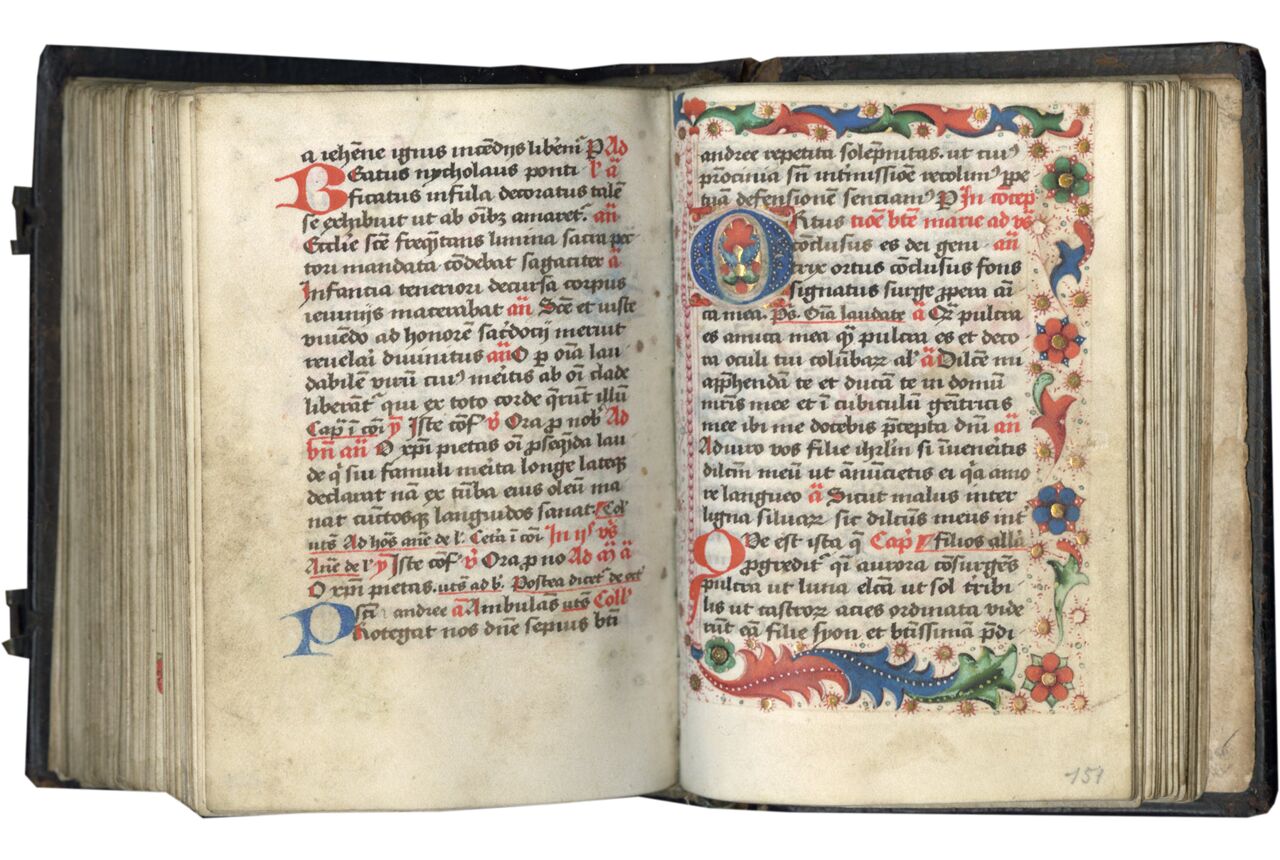 a iehēne ignis incēdijs liberiꝰ P Ad
Beatus nycholaus ponti lꝰ ā
ficatus infula decoratus talē
se exhibuit ut ab oībꝫ amaretꝰ. an̄
Ecclīe scē freqn̄tans limina sacra pec
tori mandata cōdebat sagaciter ā
Infancia teneriori decursa corpus
ieiunijs macerabat an̄ Scē et iuste
viuēdo ad honorē sacdocij meruit
reuelari diuinitus an̄ O ꝑ oīa lau
dabilē virū cuiꝰ meritis ab oī clade
liberātꝰ qui ex toto corde qrūt illū
Capꝉ ī cōi ꝟ Iste cōf ꝟ Ora ꝓ nobꝰ Ad
bn̄ an̄ O xpī pietas oī ꝓseqn̄da lau
de q̄ sui famuli merita longe lateqꝫ
declarat nā ex tūba eius oleū ma
nat cūctosqꝫ languidos sanat. Col
uts Ad hōs an̄e de lꝰ. Cetā ī cōi In ijs vꝭs
An̄e de lꝰ ꝟ Iste cōf ꝟ Ora ꝓ no Ad m̄ ā
O xpī pietas. uts ad lꝰ. Postea dicetꝰ de oct
P scī andree ā Ambulās uts Coll
Rotegat nos dn̄e sepius bti
andree repetita solēpnitas. ut cuiꝰ
prōcinia sn̄ intmissiōe recolimꝰ ꝑpe
tuā defensionē sentiamꝰ P In cōcep
O Rtus tiōe btē marie ad vꝭs
cōclusus es dei geni an̄
trix ortus cōclusus fons
signatus surge ꝓpera am̄
ca mea. Ps. Oīa laudate ā Qꝫ pulcra
es amica mea qꝫ pulcra es et deco
ra oculi tui colūbaꝝ alꝰ ā Dilcē mi
apphendā te et ducā te in domū
mr̄is mee et ī cubiculū gēitricis
mee ibi me docebis p̄cepta dn̄i an̄
Adiuro vos filie ihrlm̄ si īueneritis
dilcm̄ meū ut an̄ūcietis ei qꝛ amo
re langueo ā Sicut malus inter
ligna siluaꝝ sic dilcūs meus int̄
Q Ve est ista q̄ Capꝉ filios allā
ꝓgreditꝰ q̄i aurora cōsurgēs
pulcra ut luna elcā ut sol tribi
lis ut castroꝝ acies ordinata vide
rūt eā filie syon et btissimā p̄di
151